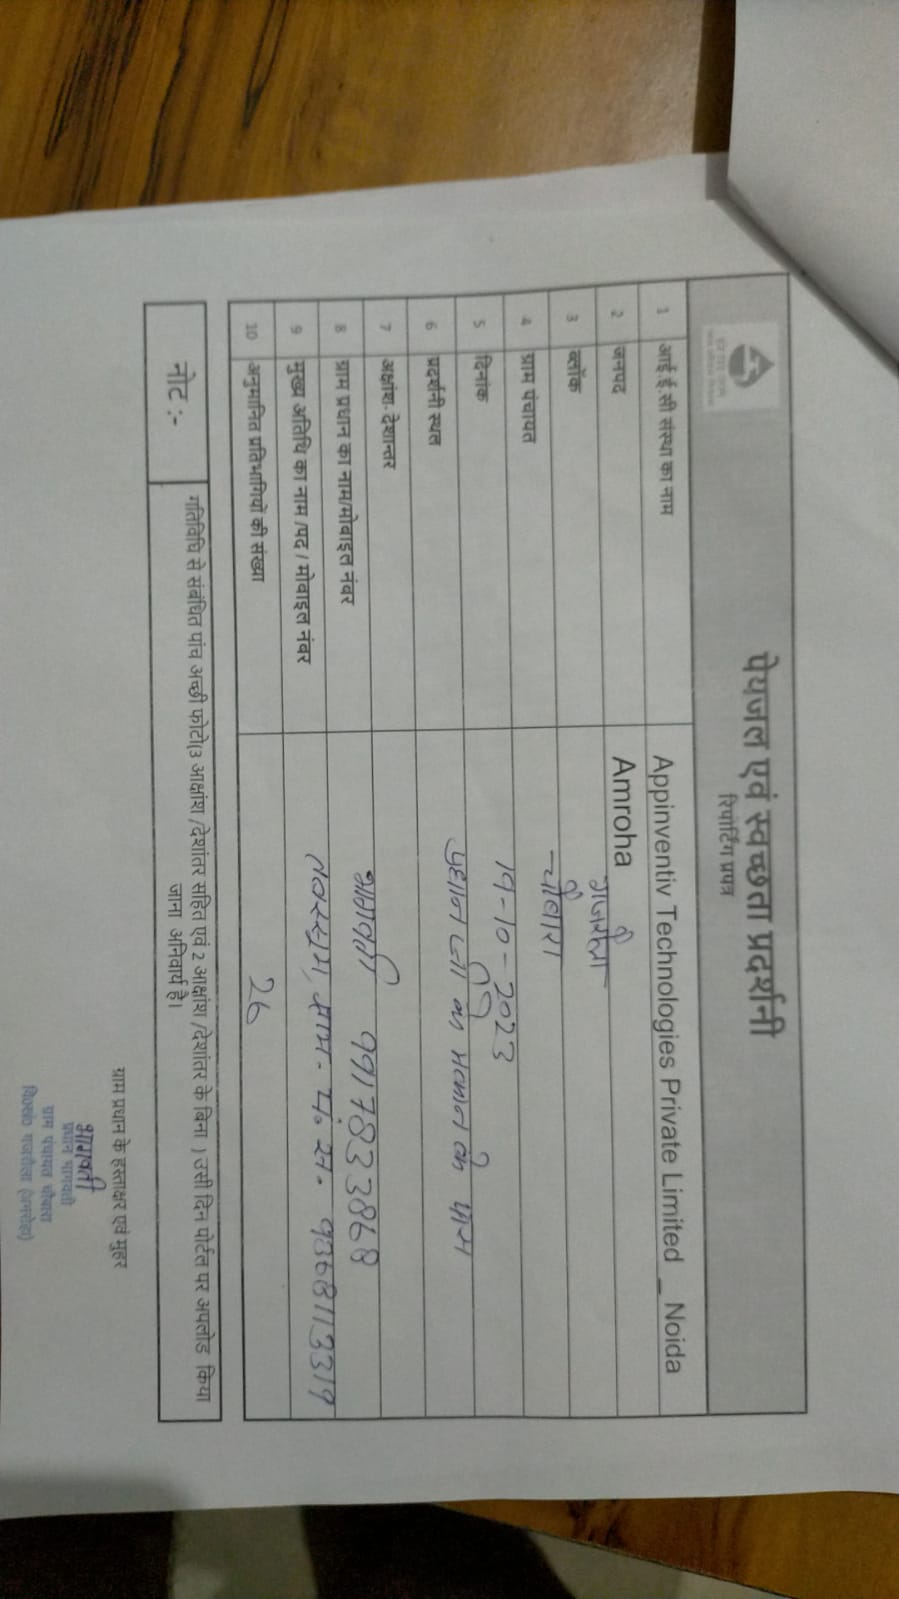 पेयजल एवं स्वच्छता प्रदर्शनी
रिपोर्टिंग प्रपत्र
1 आई.ई.सी संस्था का नाम Appinventiv Technologies Private Limited _ Noida
2 जनपद Amroha
3 ब्लॉक गजरौला
4 ग्राम पंचायत चौबारा
5 दिनांक 19-10-2023
6 प्रदर्शनी स्थल प्रधान जी के मकान के पास
7 अक्षांश- देशान्तर
8 ग्राम प्रधान का नाम/मोबाइल नंबर भागवती 9917833868
9 मुख्य अतिथि का नाम /पद / मोबाइल नंबर ग्राम. पं. स. 9368113319
10 अनुमानित प्रतिभागियों की संख्या 26
नोट :- गतिविधि से संबंधित पांच अच्छी फोटो(3 आक्षांश /देशांतर सहित एवं 2 आक्षांश /देशांतर के बिना ) उसी दिन पोर्टल पर अपलोड किया
जाना अनिवार्य है।
ग्राम प्रधान के हस्ताक्षर एवं मुहर
भागवती
प्रधान भागवती
ग्राम पंचायत चौबारा
वि०ख० गजरौला (अमरोहा)